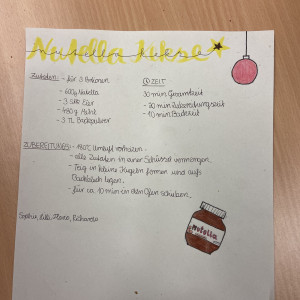 Nutella Kekse
Zutaten: - für 3 Portionen
- 600g Nutella
- 3 stk Eier
- 480g Mehl
- 3 TL Backpulver
ZEIT
30 min Gesamtzeit
- 20 min Zubereitungszeit
- 10 min Backzeit
ZUBEREITUNG: - 180°C Umluft vorheizen.
- alle Zutaten in einer Schüssel vermengen.
- Teig in kleine Kugeln formen und aufs
Backblech legen.
- für ca. 10 min in den Ofen schieben.
Nutella